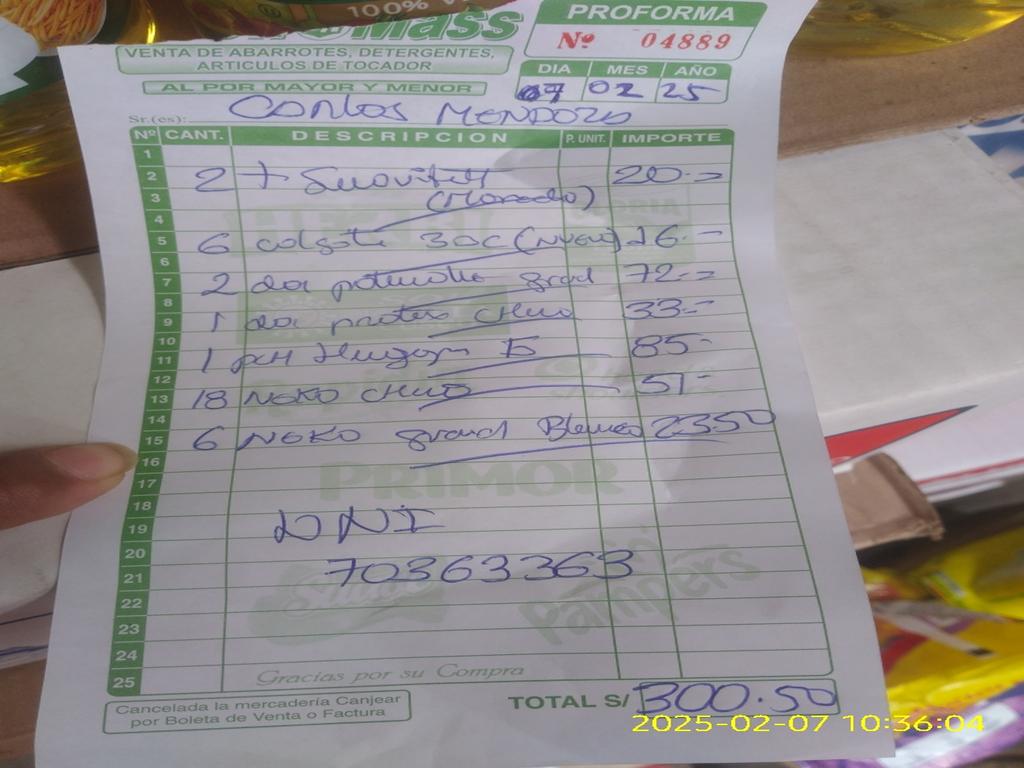 100% V
Mass
PROFORMA
Nº 04889
VENTA DE ABARROTES, DETERGENTES,
ARTICULOS DE TOCADOR
AL POR MAYOR Y MENOR
DIA MES AÑO
07 02 25
Sr.(es): Carlos Mendoza
Nº CANT. DESCRIPCION P. UNIT. IMPORTE
1
2 2 + Suavitel 20.-
3 (Morado)
4
5 6 Colgate 30C (Nuevo) 26.-
6
7 2 grand 72.-
8
9 1 Chico 33.-
10
11 1 85-
12
13 18 NOKO Chico 51-
14
15 6 NOKO grand Blanco 23.50
16
17
PRIMOR
18
19 DNI
20
21 70363363
Pampers
22
23
24
25
Gracias por su Compra
Cancelada la mercadería Canjear
por Boleta de Venta o Factura
TOTAL S/ 300.50
2025-02-07 10:36:04